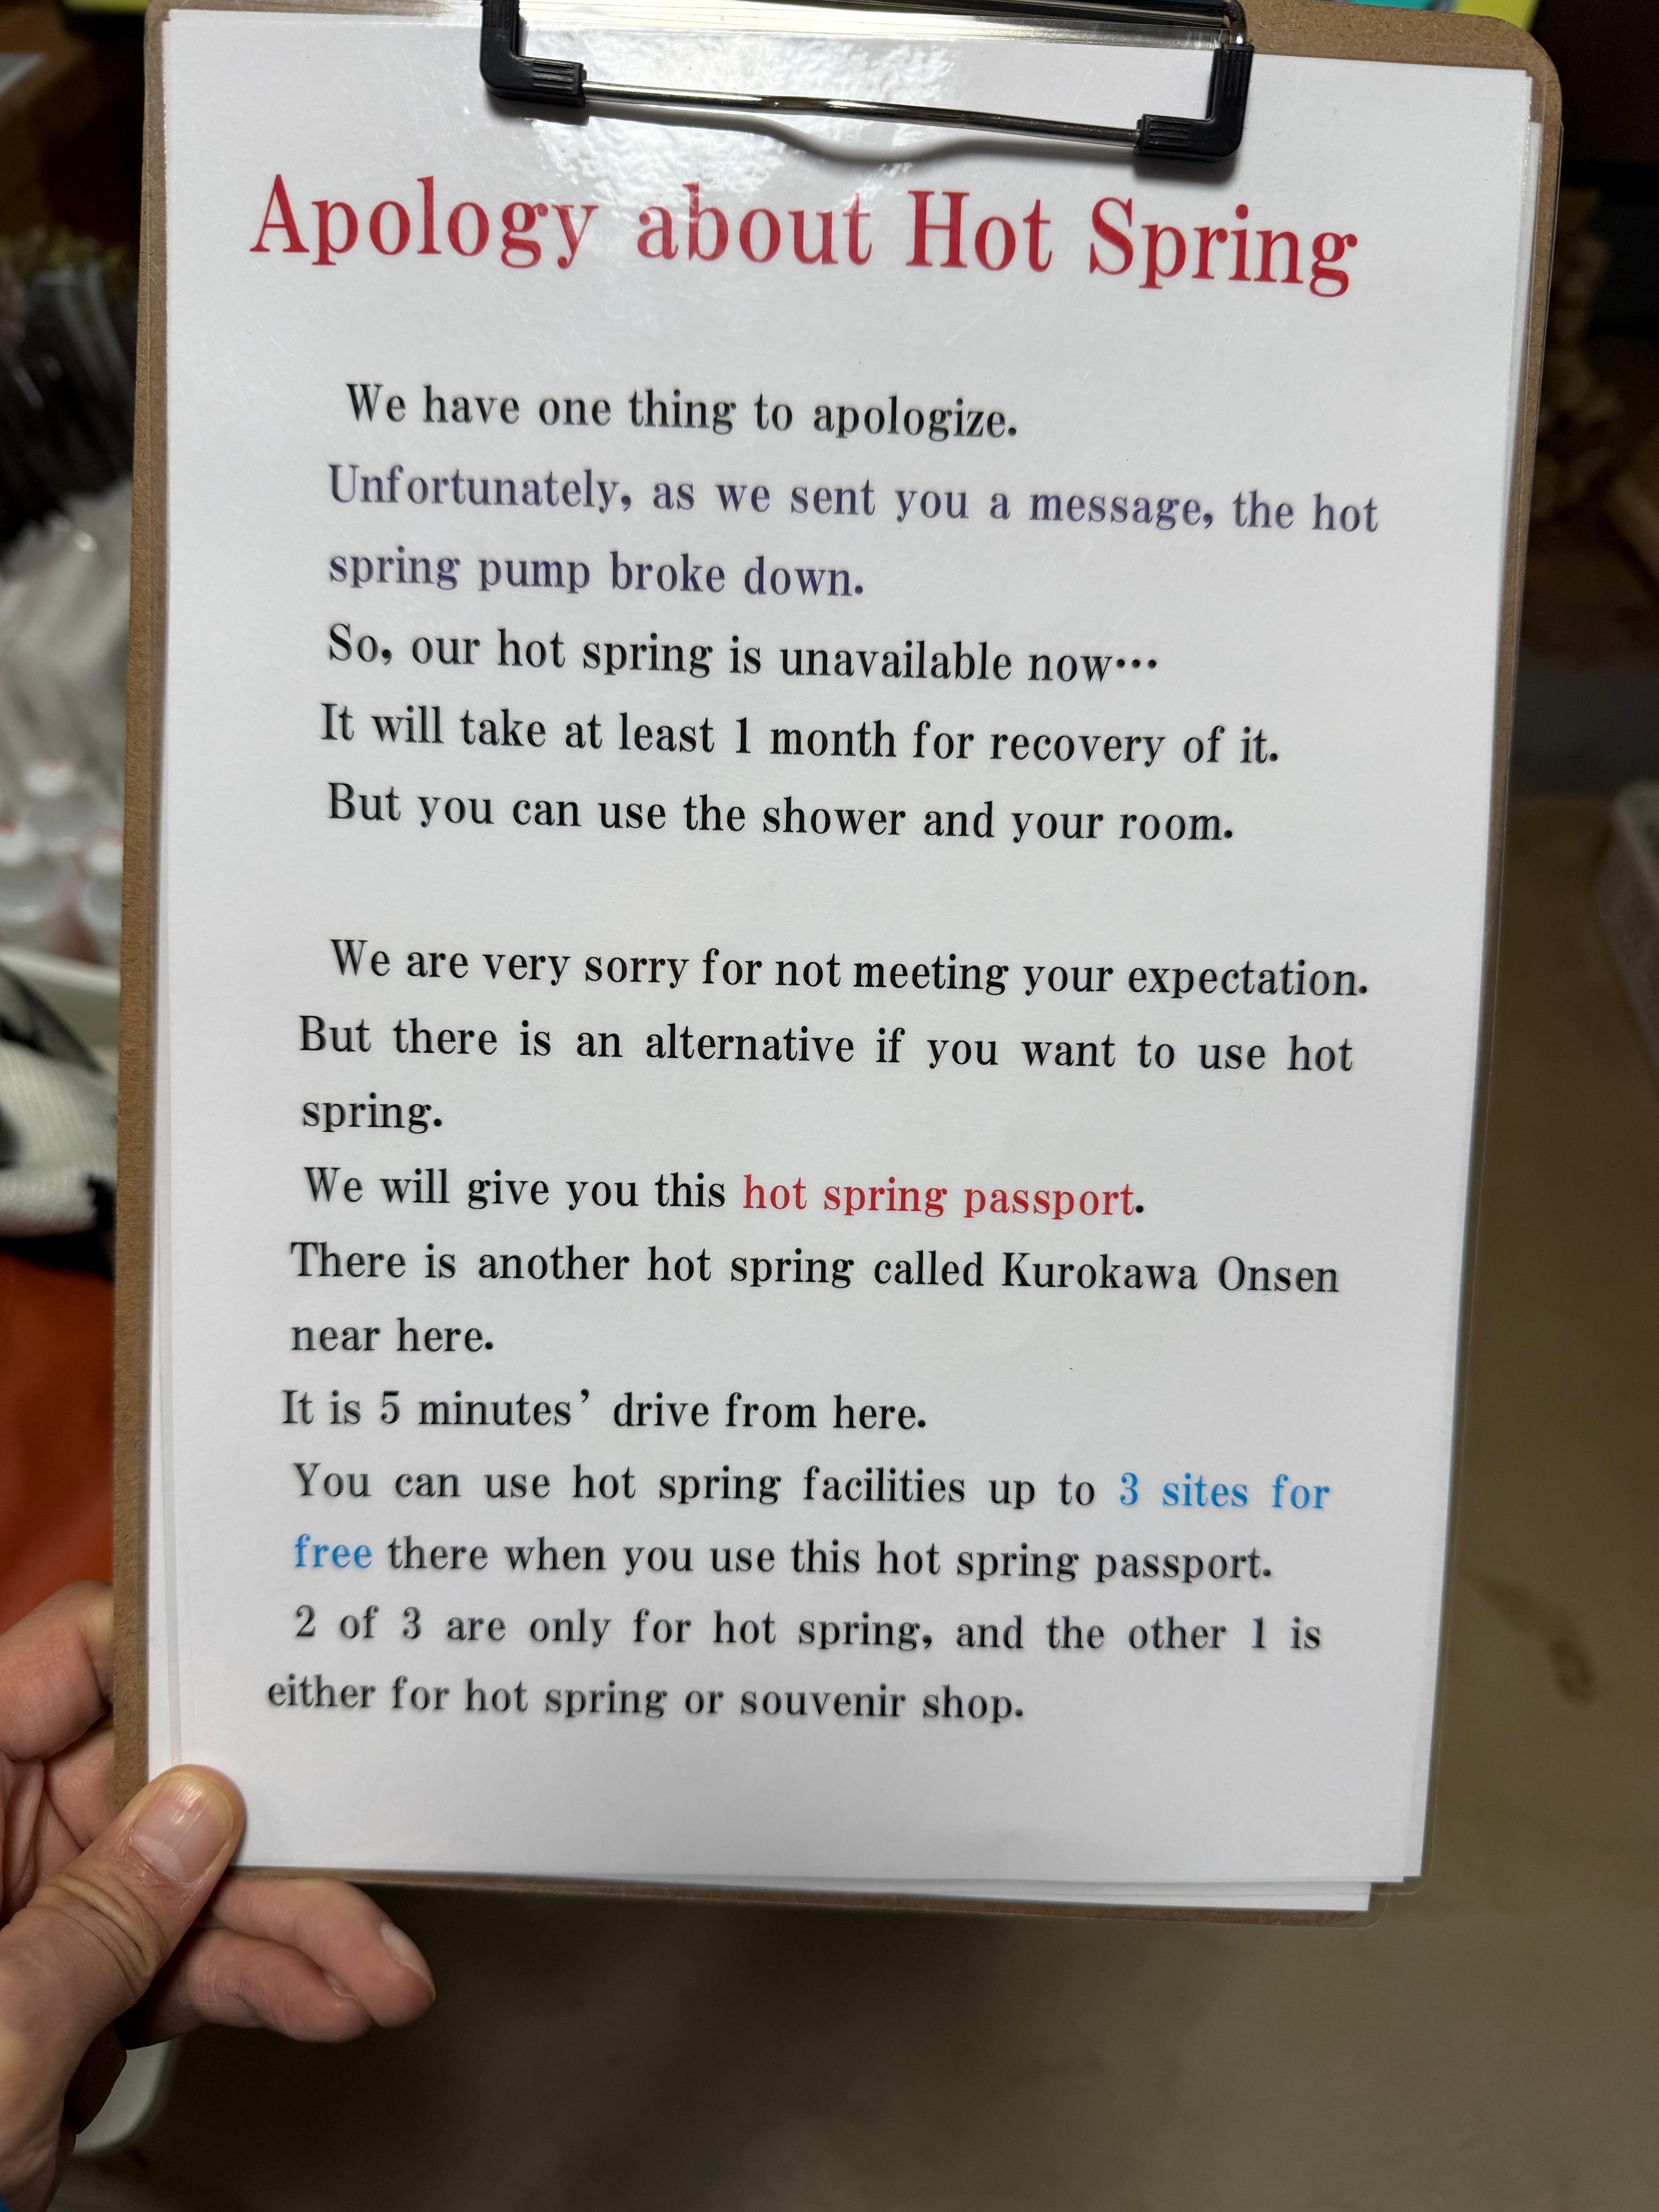 Apology about Hot Spring
We have one thing to apologize.
Unfortunately, as we sent you a message, the hot
spring pump broke down.
So, our hot spring is unavailable now…
It will take at least 1 month for recovery of it.
But you can use the shower and your room.
We are very sorry for not meeting your expectation.
But there is an alternative if you want to use hot
spring.
We will give you this hot spring passport.
There is another hot spring called Kurokawa Onsen
near here.
It is 5 minutes’ drive from here.
You can use hot spring facilities up to 3 sites for
free there when you use this hot spring passport.
2 of 3 are only for hot spring, and the other 1 is
either for hot spring or souvenir shop.